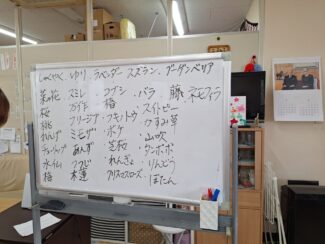 しゃくやく ゆり ラベンダー スズラン ブーゲンベリア
菜の花 スミレ コブシ バラ 藤 ネモフィラ
桜 カタクリ 椿 スイトピー
桃 フリージア フキノトウ かすみ草
れんげ ミモザ ボケ 山吹
チューリップ あんず 芝桜 タンポポ
水仙 つつじ れんぎょ りんどう
梅 木蓮 クリスマスローズ ぼたん